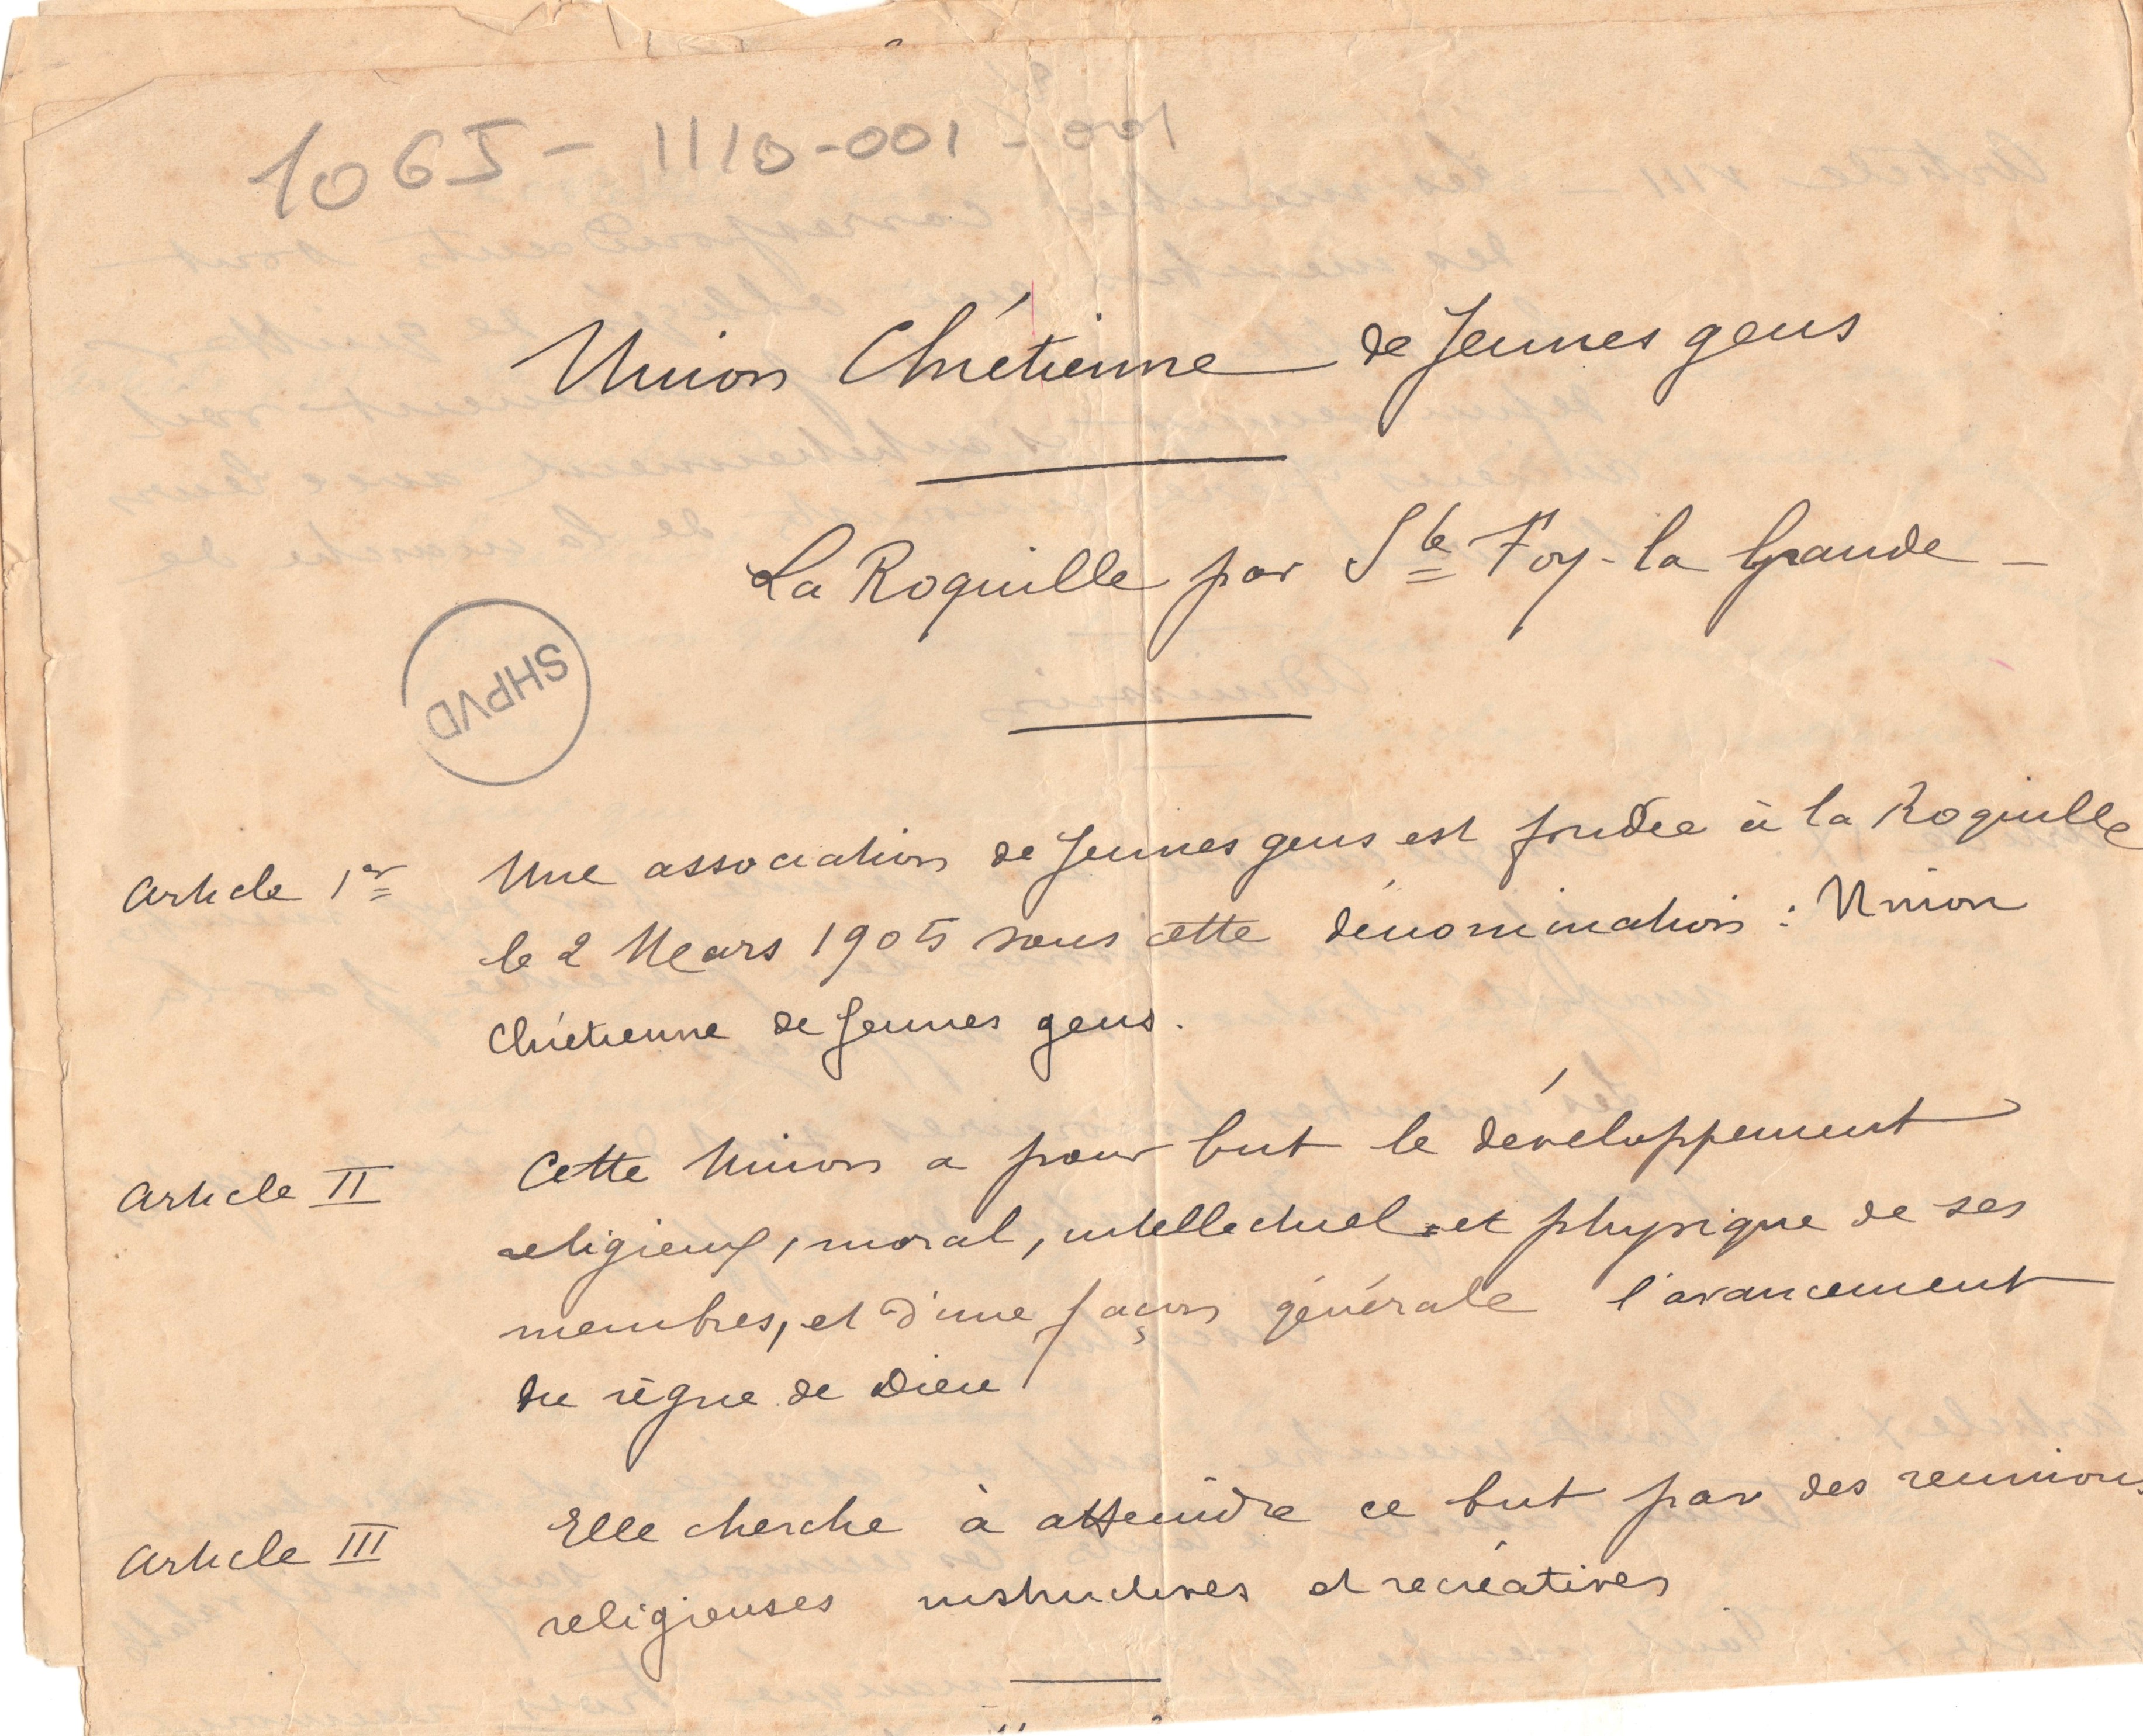 1065-1110-001-001
Union Chrétienne de Jeunes gens
La Roquille par Ste Foy-la Grande -
SHPVD
Article 1er Une association de Jeunes gens est fondée à la Roquille
le 2 Mars 1905 sous cette dénomination : Union
Chrétienne de Jeunes gens.
Article II Cette Union a pour but le développement
religieux, moral, intellectuel et physique de ses
membres, et d'une façon générale l'avancement
du règne de Dieu
Article III Elle cherche à atteindre ce but par des reunions
religieuses instructives et récréatives